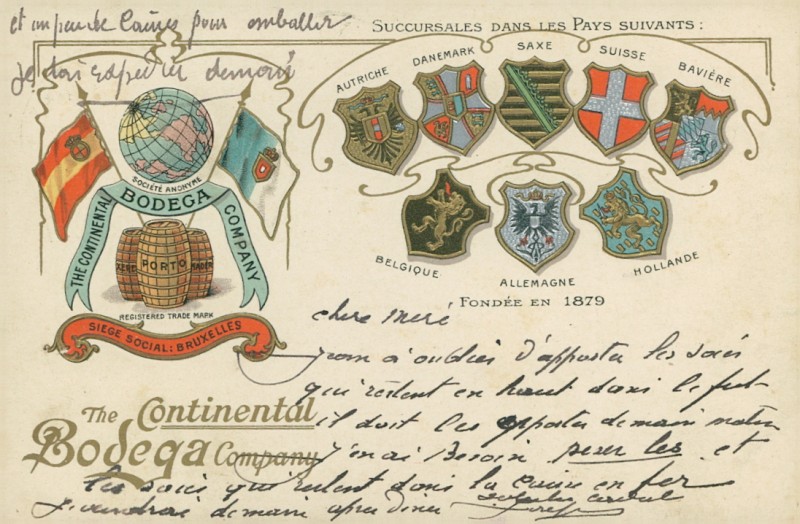 et un peu de Caises pour emballer
je dois expedier demain
SUCCURSALES DANS LES PAYS SUIVANTS:
AUTRICHE
DANEMARK
SAXE
SUISSE
BAVIÈRE
SOCIÉTÉ ANONYME
THE CONTINENTAL BODEGA COMPANY
XERES PORTO MADERE
REGISTERED TRADE MARK
SIEGE SOCIAL: BRUXELLES
BELGIQUE
ALLEMAGNE
HOLLANDE
FONDÉE EN 1879
chere meré
a oublié d'apporter les
qui restent en haut dans le
il doit les apporter demain matin
j'en ai Besoin peser les et
The Continental
Bodega Company
les qui restent dans la caisse en fer
je viendrai demain apres diner